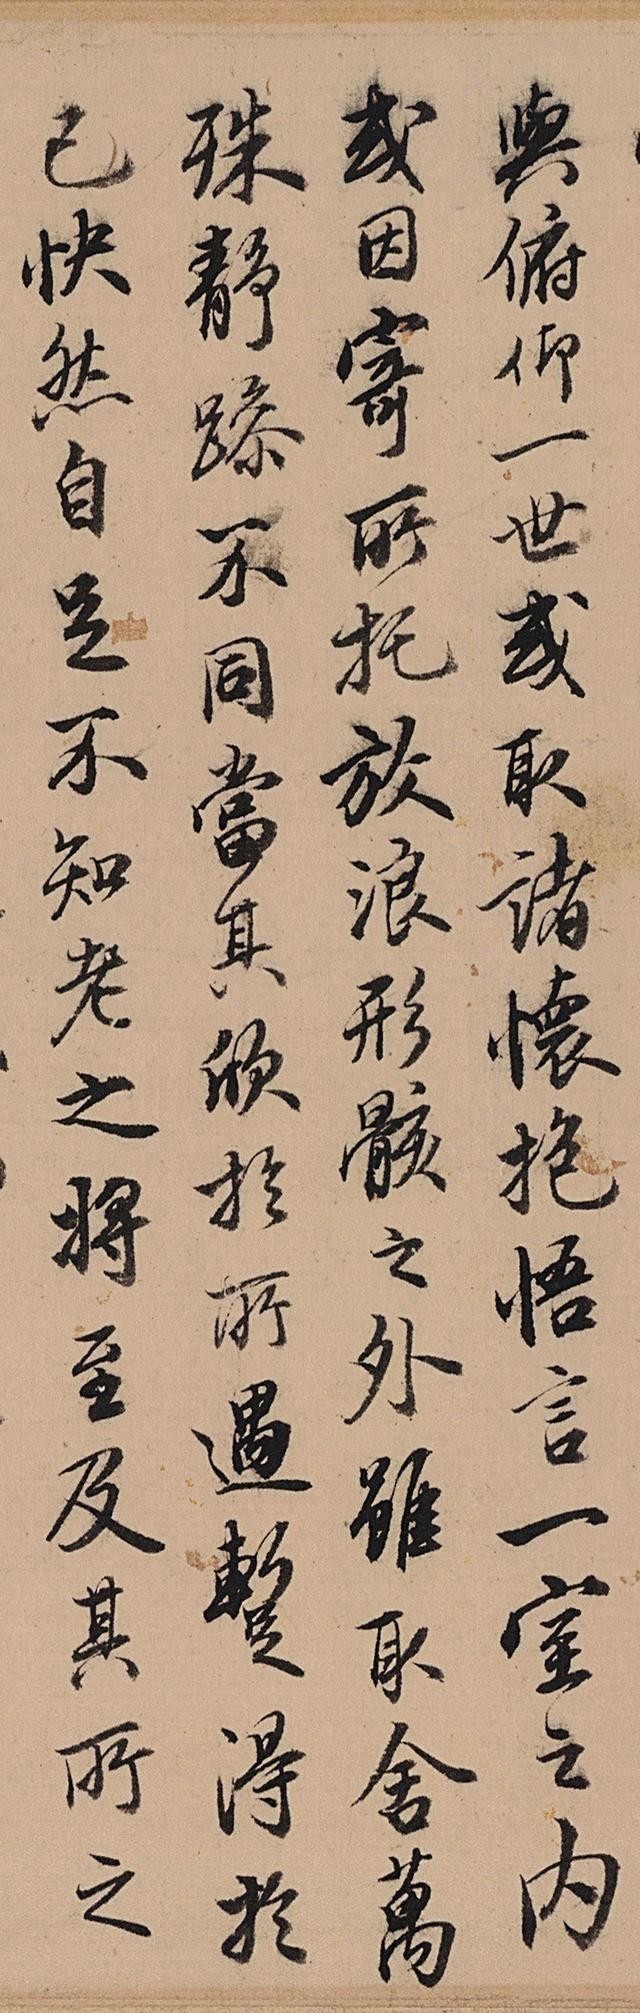 與俯仰一世或取諸懷抱悟言一室之内
或因寄所托放浪形骸之外雖取舍萬
殊静躁不同當其欣於所遇蹔得於
己快然自足不知老之將至及其所之